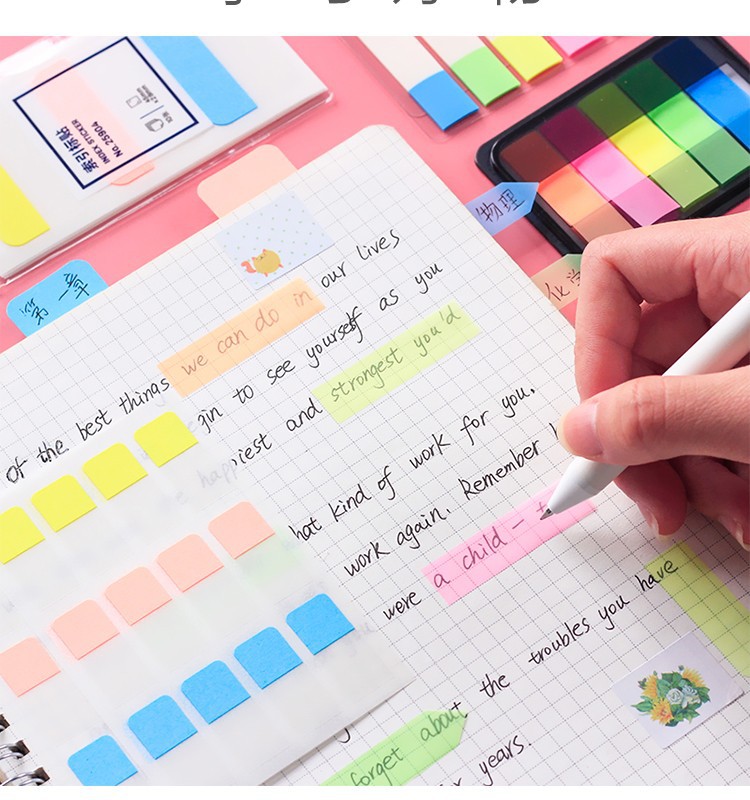 索引标贴
INDEX STICKER
No.25904
第一章
物理
化学
our lives
we can do in
of the best things
to see yourself as you
strongest you'd
happiest and
hat kind of work for you.
work again. Remember
were a child -
the troubles you have
forget about
years.